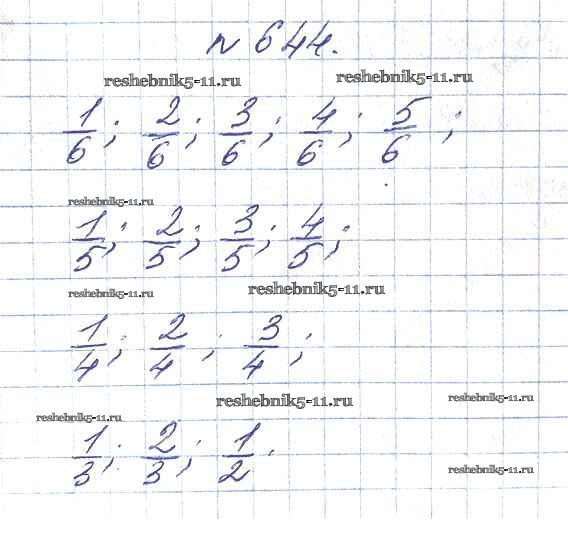 № 644.
reshebnik5-11.ru reshebnik5-11.ru
1/6; 2/6; 3/6; 4/6; 5/6;
reshebnik5-11.ru
1/5; 2/5; 3/5; 4/5;
reshebnik5-11.ru reshebnik5-11.ru
1/4; 2/4; 3/4;
reshebnik5-11.ru reshebnik5-11.ru
reshebnik5-11.ru
1/3; 2/3; 1/2.
reshebnik5-11.ru